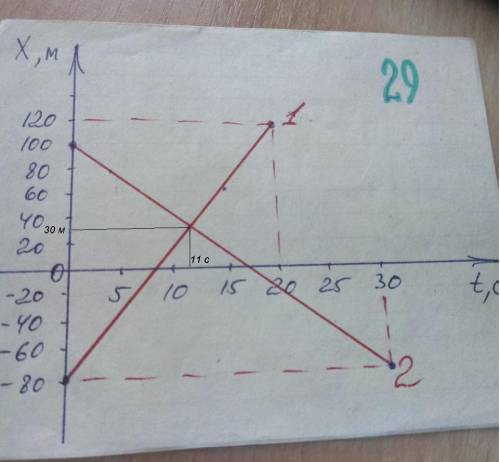 X, м
29
120
1
100
80
60
40
30 м
20
11 с
0
5 10 15 20 25 30 t, с
-20
-40
-60
-80
2